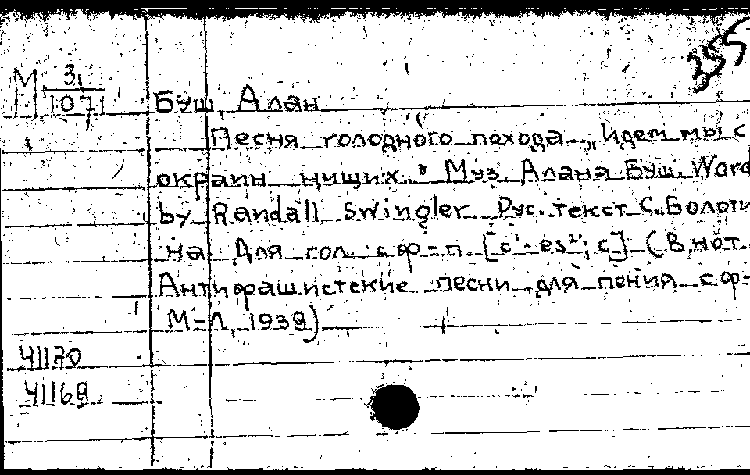 355
М 3/107 Буш, Алан
Песня голодного похода. „Идем мы с
окраин нищих." Муз. Алана Буш. Word
by Randall Swingler. Рус. текст С. Болоти
на. Для гол. с ф-п. [c¹-es²; c] (В нот.
Антифашистские песни для пения с ф-
М-Л, 1939)
41170
41169